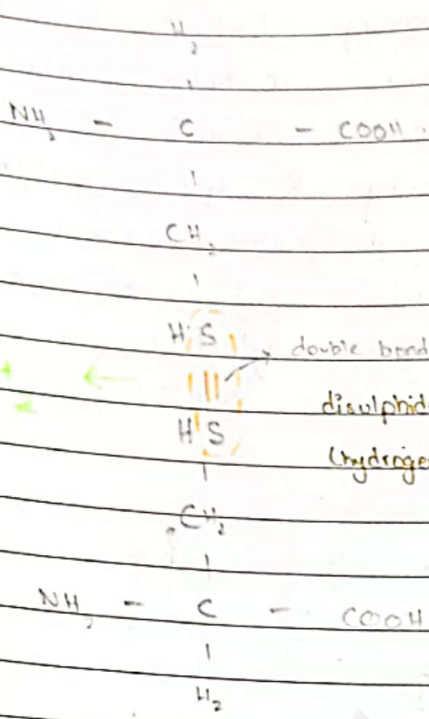 H₂
NH₂ - C - COOH
CH₂
HS
double bond
disulphid
HS
(hydroge
CH₂
NH₂ - C - COOH
H₂